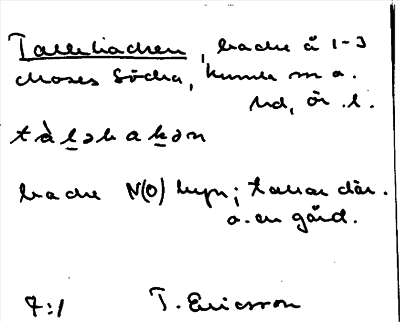 Tallebacken, backe å 1-3
Moses Södra, kumla sn a.
Nd, ör. l.
tàḷəbaḳən
backe N(O) byn; tallar där.
o. en gård.
7:1 T. Ericsson